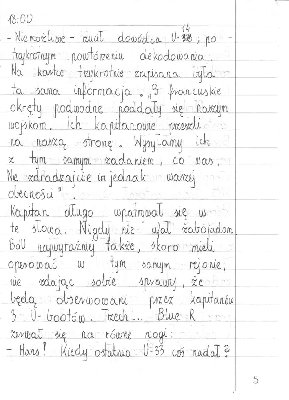 18:00
- Niemożliwe - rzekł dowódca U-33, po
trzykrotnym powtórzeniu dekodowania.
Na kartce trzykrotnie zapisana była
ta sama informacja. „3 francuskie
okręty podwodne poddały się naszym
wojskom. Ich kapitanowie przeszli
na naszą stronę. Wysyłamy ich
z tym samym zadaniem, co was.
Nie zdradzajcie im jednak waszej
obecności".
Kapitan długo wpatrywał się w
te słowa. Nigdy nie ufał żabojadom.
BdU najwyraźniej także, skoro mieli
operować w tym samym rejonie,
nie zdając sobie sprawy, że
będą obserwowani przez kapitanów
3 U-Bootów. Trzech... Blue R
zerwał się na równe nogi:
- Hans! Kiedy ostatnio U-33 coś nadał?
5